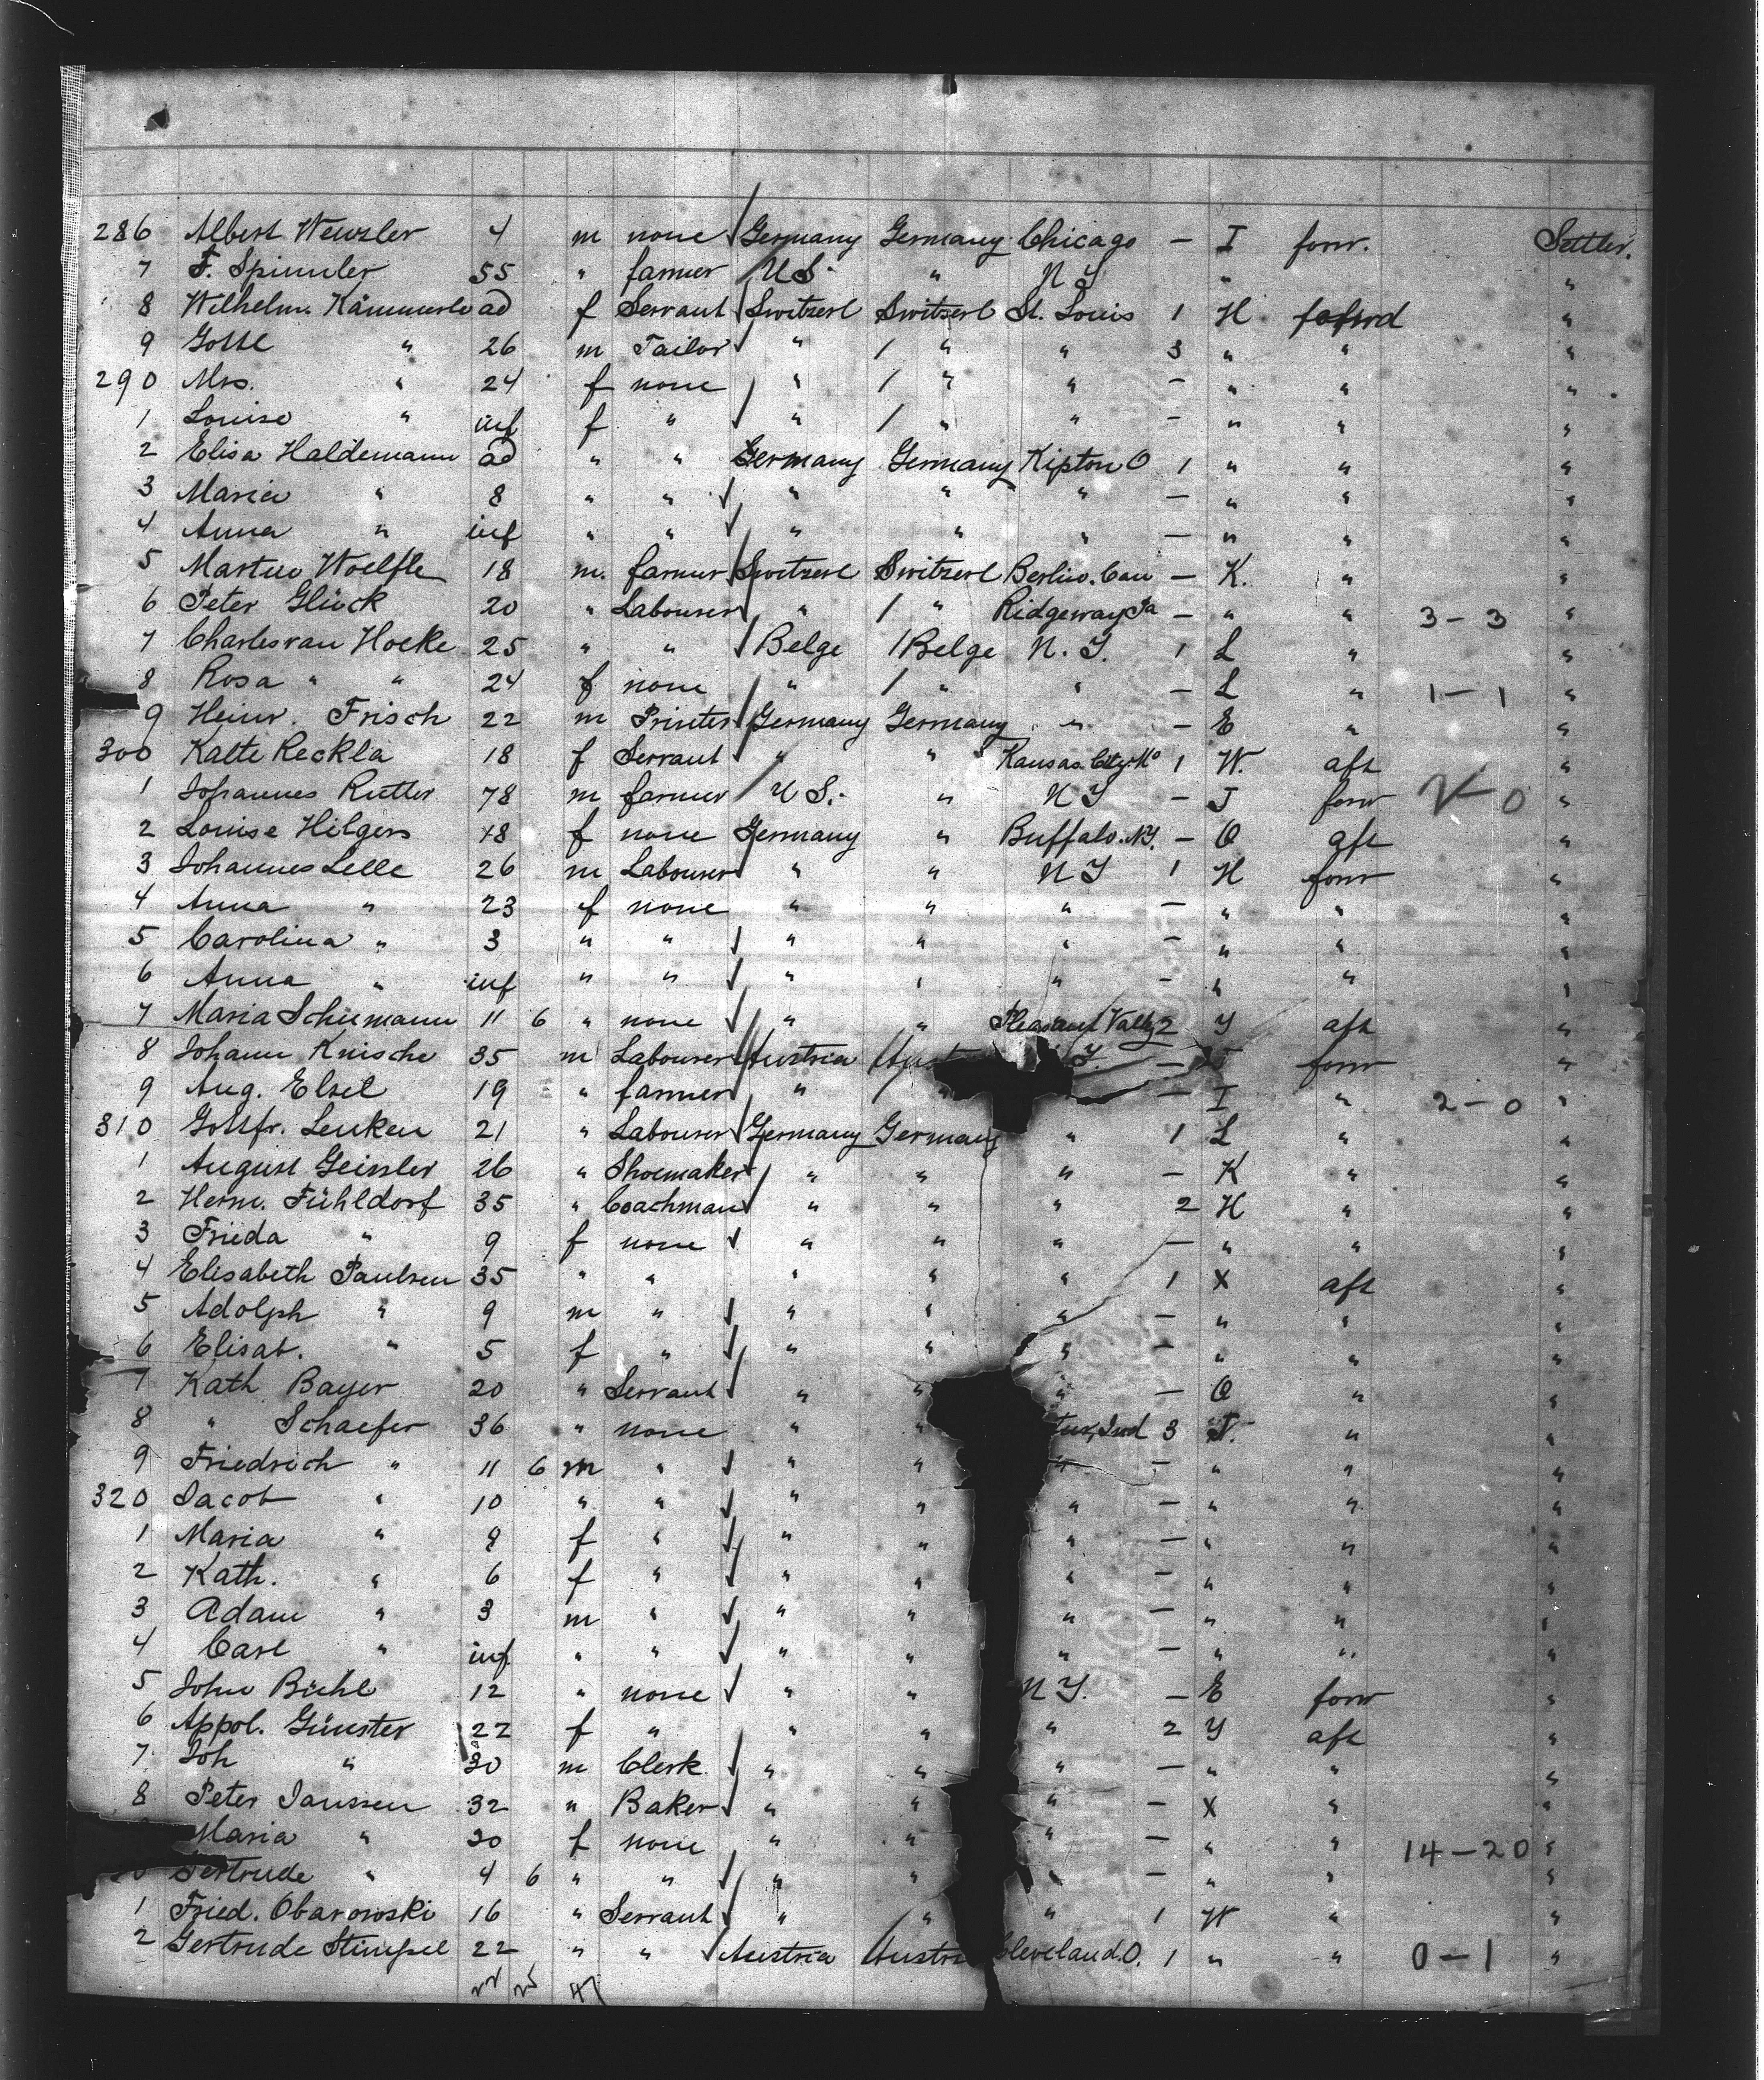 286 Albert Wenzler 4 m none Germany Germany Chicago — I forw. Settler.
7 F. Spinnler 55 " farmer U S. " N Y " "
8 Wilhelm. Kämmerle ad f Servant Switzerl Switzerl St. Louis 1 H forwd "
9 Gottl " 26 m Tailor " " " 3 " " "
290 Mrs. " 24 f none " " " — " " "
1 Louise " inf f " " " " — " " "
2 Elisa Haldemann ad " " Germany Germany Kipton O 1 " " "
3 Maria " 8 " " " " " — " " "
4 Anna " inf " " " " " — " " "
5 Martin Woelfle 18 m. farmer Switzerl Switzerl Berlin. Can — K. " "
6 Peter Glück 20 " Labourer " " Ridgeway Pa — " " 3 - 3 "
7 Charles van Hoeke 25 " " Belge Belge N. Y. 1 L " "
8 Rosa " " 24 f none " " " — L " 1 - 1 "
9 Heinr. Frisch 22 m Printer Germany Germany " — E " "
300 Katte Reckla 18 f Servant " " Kansas City Mo 1 W. aft "
1 Johannes Rutler 78 m farmer U S. " N Y — J forw 0 "
2 Louise Hilgers 48 f none Germany " Buffalo. N.Y. — O aft "
3 Johannes Lelle 26 m Labourer " " N Y 1 H forw "
4 Anna " 23 f none " " " — " " "
5 Carolina " 3 " " " " " — " " "
6 Anna " inf " " " " " — " " "
7 Maria Schumann 11 6 " none " " Pleasant Vally 2 Y aft "
8 Johann Knische 35 m Labourer Austria Aus Y. — forw "
9 Aug. Elsel 19 " farmer " " — I " 2 - 0 "
310 Gottfr. Lenken 21 " Labourer Germany Germany " 1 L " "
1 August Geissler 26 " Shoemaker " " " — K " "
2 Herm. Fühldorf 35 " Coachman " " " 2 H " "
3 Frieda " 9 f none " " " — " " "
4 Elisabeth Paulsen 35 " " " " " 1 X aft "
5 Adolph " 9 m " " " " — " " "
6 Elisab. " 5 f " " " " — " " "
7 Kath Bayer 20 " Servant " " " — O " "
8 " Schaefer 36 " none " " Ind 3 " "
9 Friedrich " 11 6 m " " " " — " " "
320 Jacob " 10 " " " " " — " " "
1 Maria " 9 f " " " " — " " "
2 Kath. " 6 f " " " " — " " "
3 Adam " 3 m " " " " — " " "
4 Carl " inf " " " " " — " " "
5 John Bühl 12 " none " " N Y. — E forw "
6 Appol. Günster 22 f " " " " 2 Y aft "
7 Joh " 30 m Clerk " " " — " " "
8 Peter Janssen 32 " Baker " " " — X " "
Maria " 20 f none " " " — " " 14 - 20 "
0 Gertrude " 4 6 " " " " " — " " "
1 Fried. Obarowski 16 " Servant " " " 1 W " "
2 Gertrude Stimpel 22 " " Austria Austri Cleveland. O. 1 " " 0 - 1 "